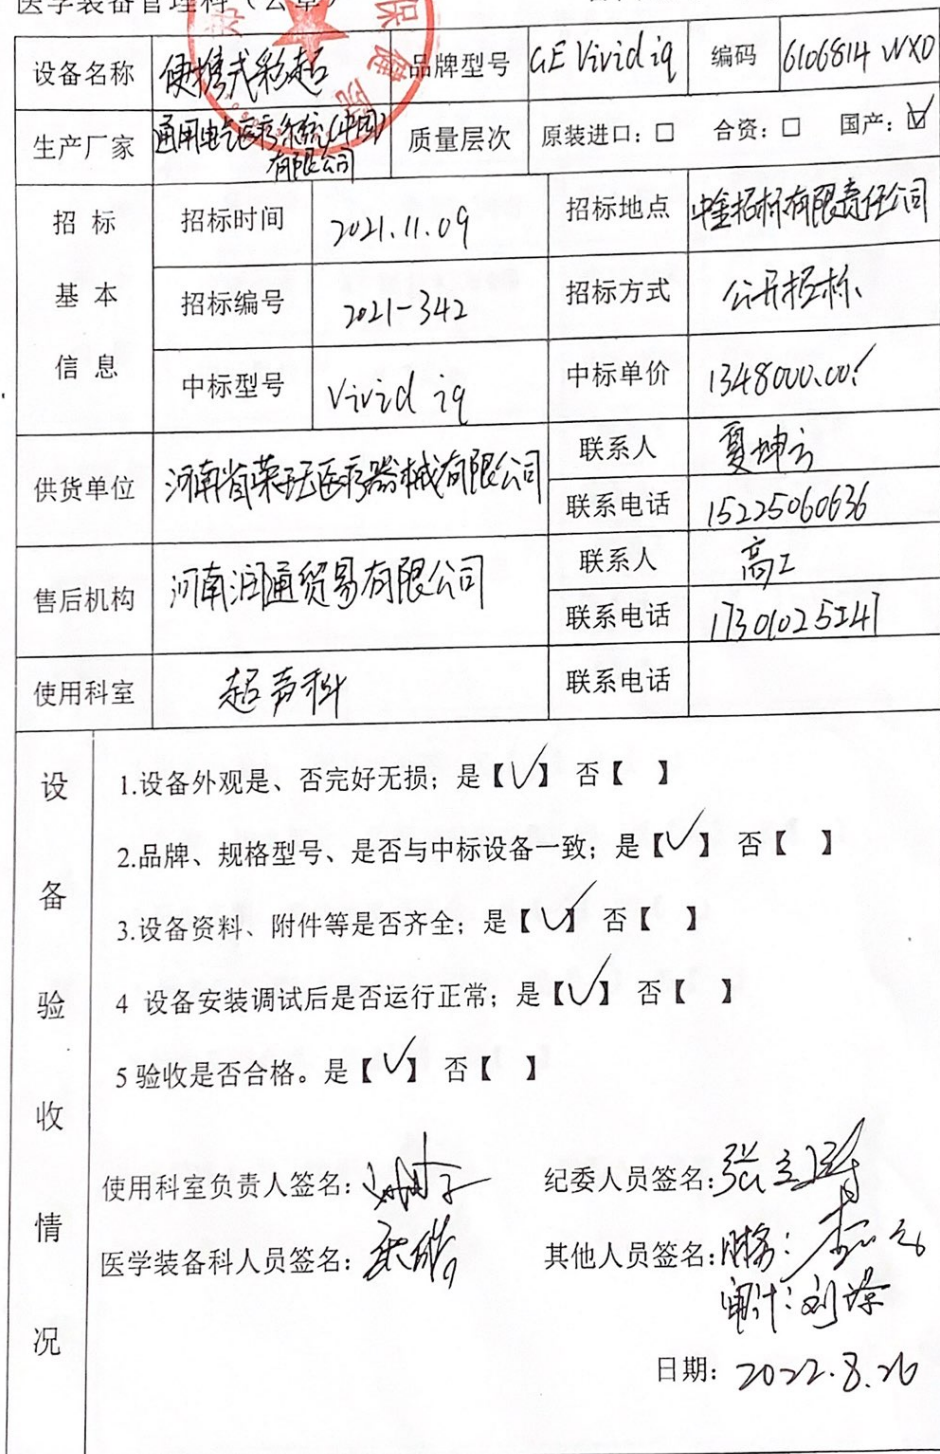 医学装备管理科（公章）
保健院
设备名称 便携式彩超 品牌型号 GE Vivid iq 编码 6106814 WX0
生产厂家 通用电气医疗系统(中国)有限公司 质量层次 原装进口：□ 合资：□ 国产：☑
招标基本信息
招标时间 2021.11.09 招标地点 中金招标有限责任公司
招标编号 2021-342 招标方式 公开招标
中标型号 Vivid iq 中标单价 1348000.00
供货单位 河南省荣珏医疗器械有限公司 联系人 夏坤云
联系电话 15225060636
售后机构 河南润通贸易有限公司 联系人 高工
联系电话 17301025247
使用科室 超声科 联系电话
设备验收情况
1.设备外观是、否完好无损；是【√】 否【 】
2.品牌、规格型号、是否与中标设备一致；是【√】 否【 】
3.设备资料、附件等是否齐全；是【√】 否【 】
4 设备安装调试后是否运行正常；是【√】 否【 】
5 验收是否合格。是【√】 否【 】
使用科室负责人签名： 纪委人员签名：张
医学装备科人员签名： 其他人员签名：
审计：刘
日期：2022.8.26